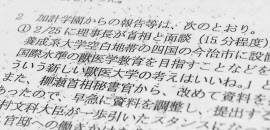 2 加計学園からの報告等は、次のとおり。
① 2/25に理事長が首相と面談(15分程度)
養成系大学空白地帯の四国の今治市に設
国際水準の獣医学教育を目指すことなどを
ういう新しい獣医大学の考えはいいね。」と
また、柳瀬首相秘書官から、改めて資料を
あったので、早急に資料を調整し、提出する
村文科大臣が一歩引いたスタンス
官邸への働きかけ